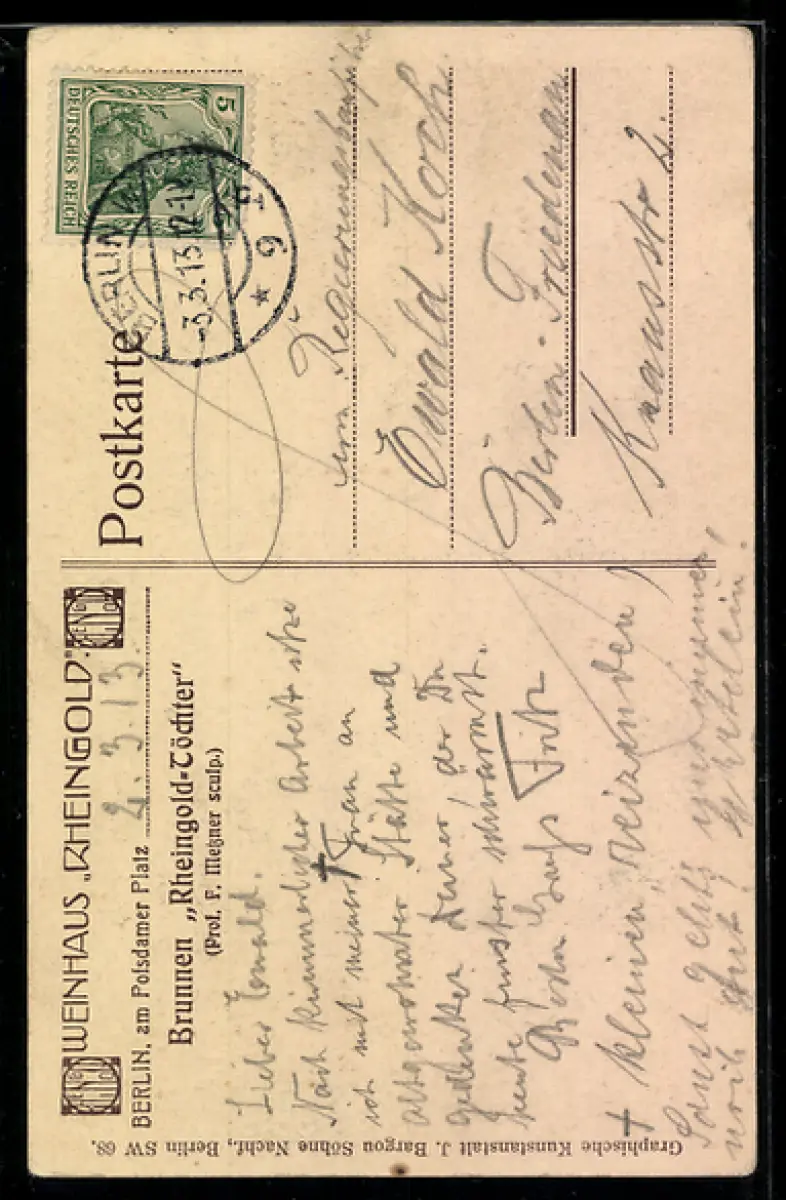 WEINHAUS „RHEINGOLD“
BERLIN, am Potsdamer Platz 2.3.13.
Brunnen „Rheingold-Töchter“
(Prof. F. Meßner sculp.)
Lieber Ewald.
Nach kümmerlicher Arbeit sitze
ich mit meiner † Frau an
altgewohnter Stätte und
gedenken Deiner, der Du
heute fenster schwärmst.
Besten Gruß Fritz
† kleinen, reizenden,
Sonst gehts
gut!
Graphische Kunstanstalt J. Bargou Söhne Nachf., Berlin SW 68.
Postkarte
DEUTSCHES REICH
5
BERLIN
-3.3.13.12-1
* 9
Herrn Regierungsbauführer
Ewald Koch
Berlin-Friedenau
Knausstr 2.